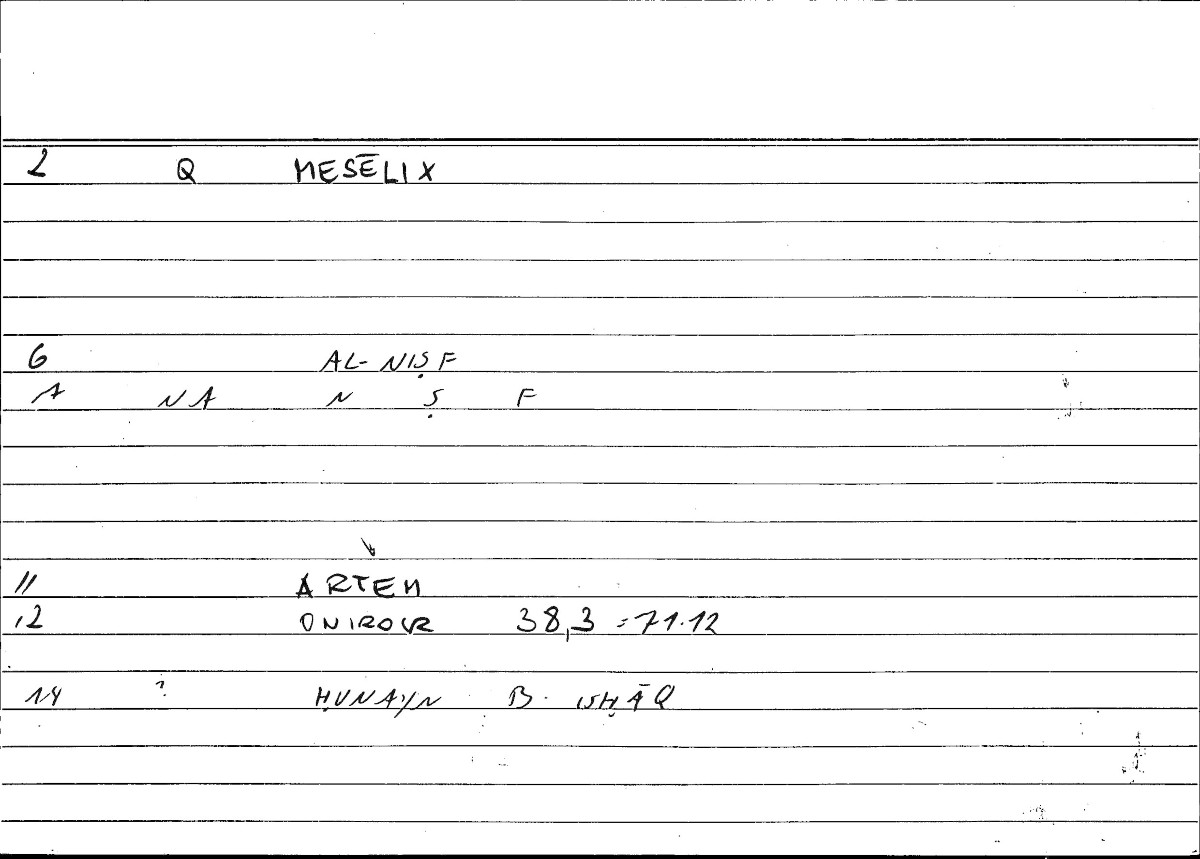 2 Q MESĒLIX
6 AL-NIṢF
A NA N Ṣ F
11 ARTEM
12 ONIROCR 38,3 = 71.12
14 ? ḤUNAYN B. ISḤĀQ